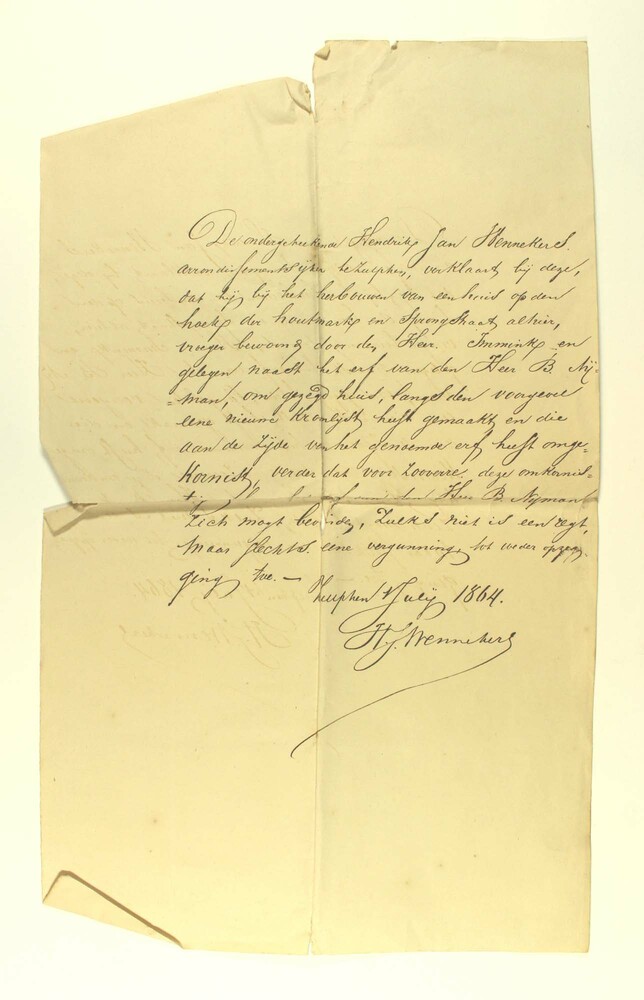 De ondergeteekende Hendrik Jan Wennekers.
arrondissements ijker te Zutphen, verklaart bij deze,
dat hij bij het herbouwen van een huis op den
hoek der houtmarkt en Sprongstraat alhier,
vroeger bewoond door den Heer. Immink en
gelegen naast het erf van den Heer B. Nij-
=man, om gezegd huis, langs den voorgevel
eene nieuwe Kroonlijst heeft gemaakt en die
aan de Zijde van het genoemde erf heeft omge=
Kornist, verder dat voor Zooverre, deze omkornis-
den Heer B Nijman
Zich mogt bevinden, Zulks niet is een regt,
Maar slechts eene vergunning tot weder opzeg-
ging toe. —
Zutphen Julij 1864.
HJ. Wennekers